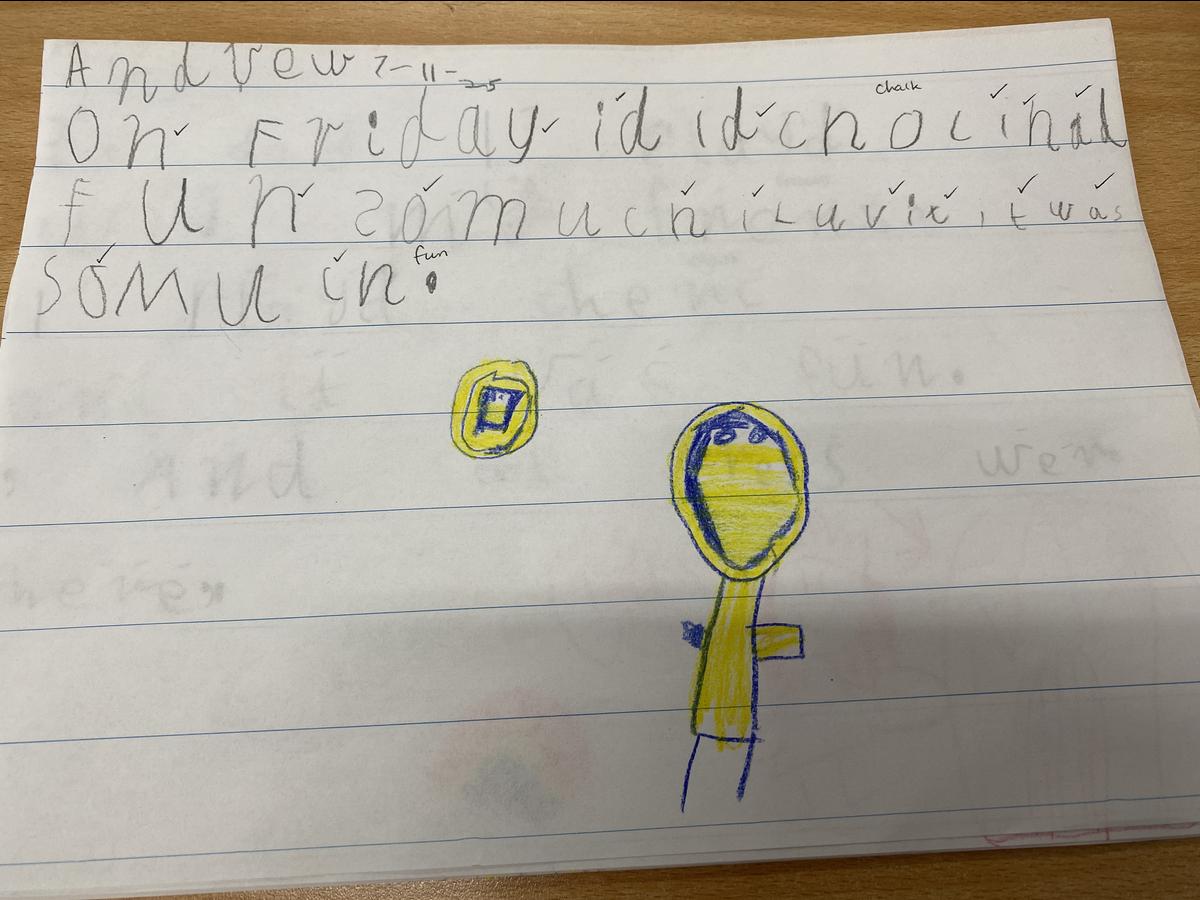 Andrew 7-11-25
chalk
On Friday id id cnoc inad
fun somucn iLuvit, it was
fun
somuin.